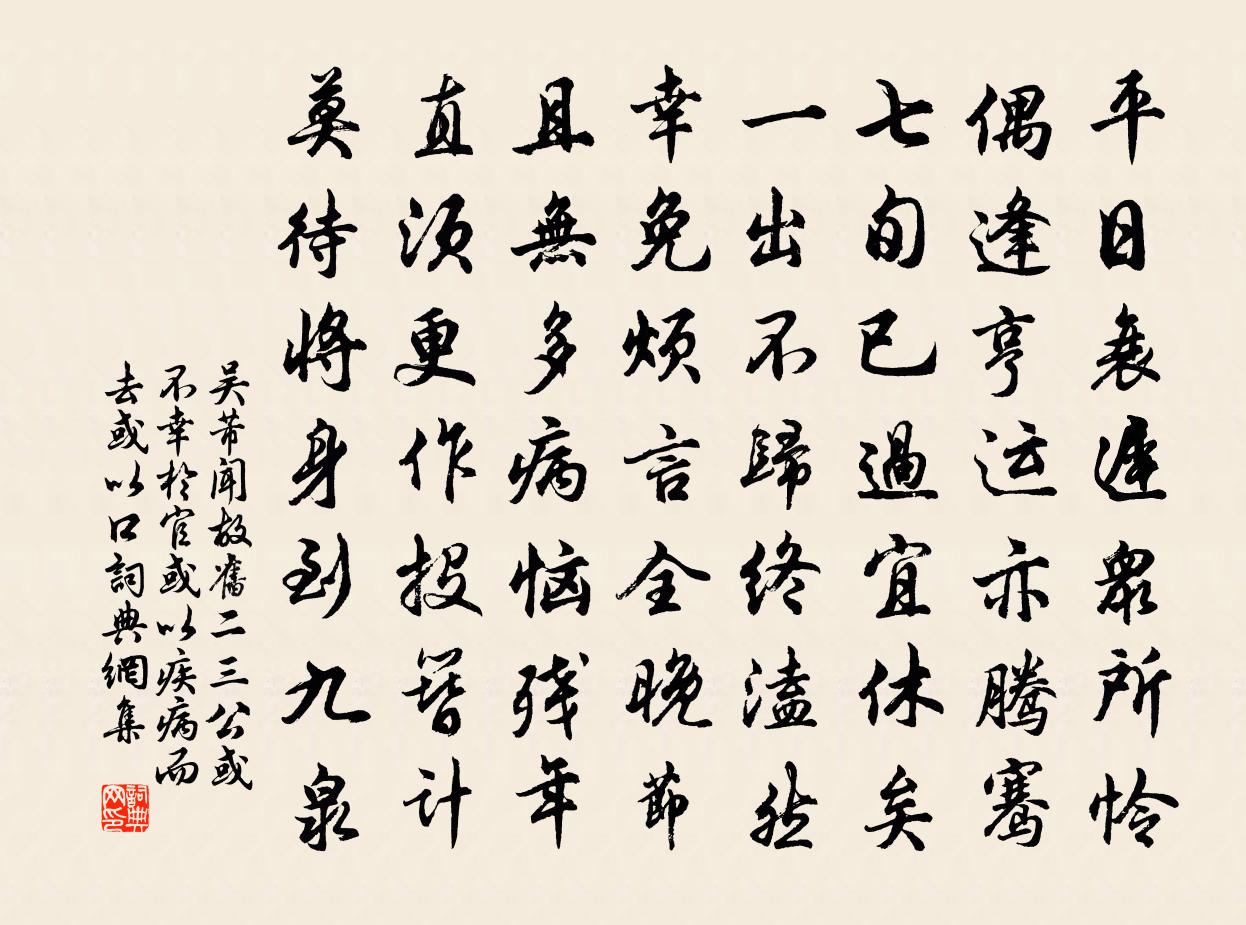 平日衰遲眾所怜
偶逢亨运亦腾骞
七旬已過宜休矣
一出不歸终溘然
幸免烦言全晚節
且無多病恼残年
直须更作投簪计
莫待将身到九泉
吴芾闻故舊二三公或
不幸於官或以疾病而
去或以口詞典網集
詞典网印